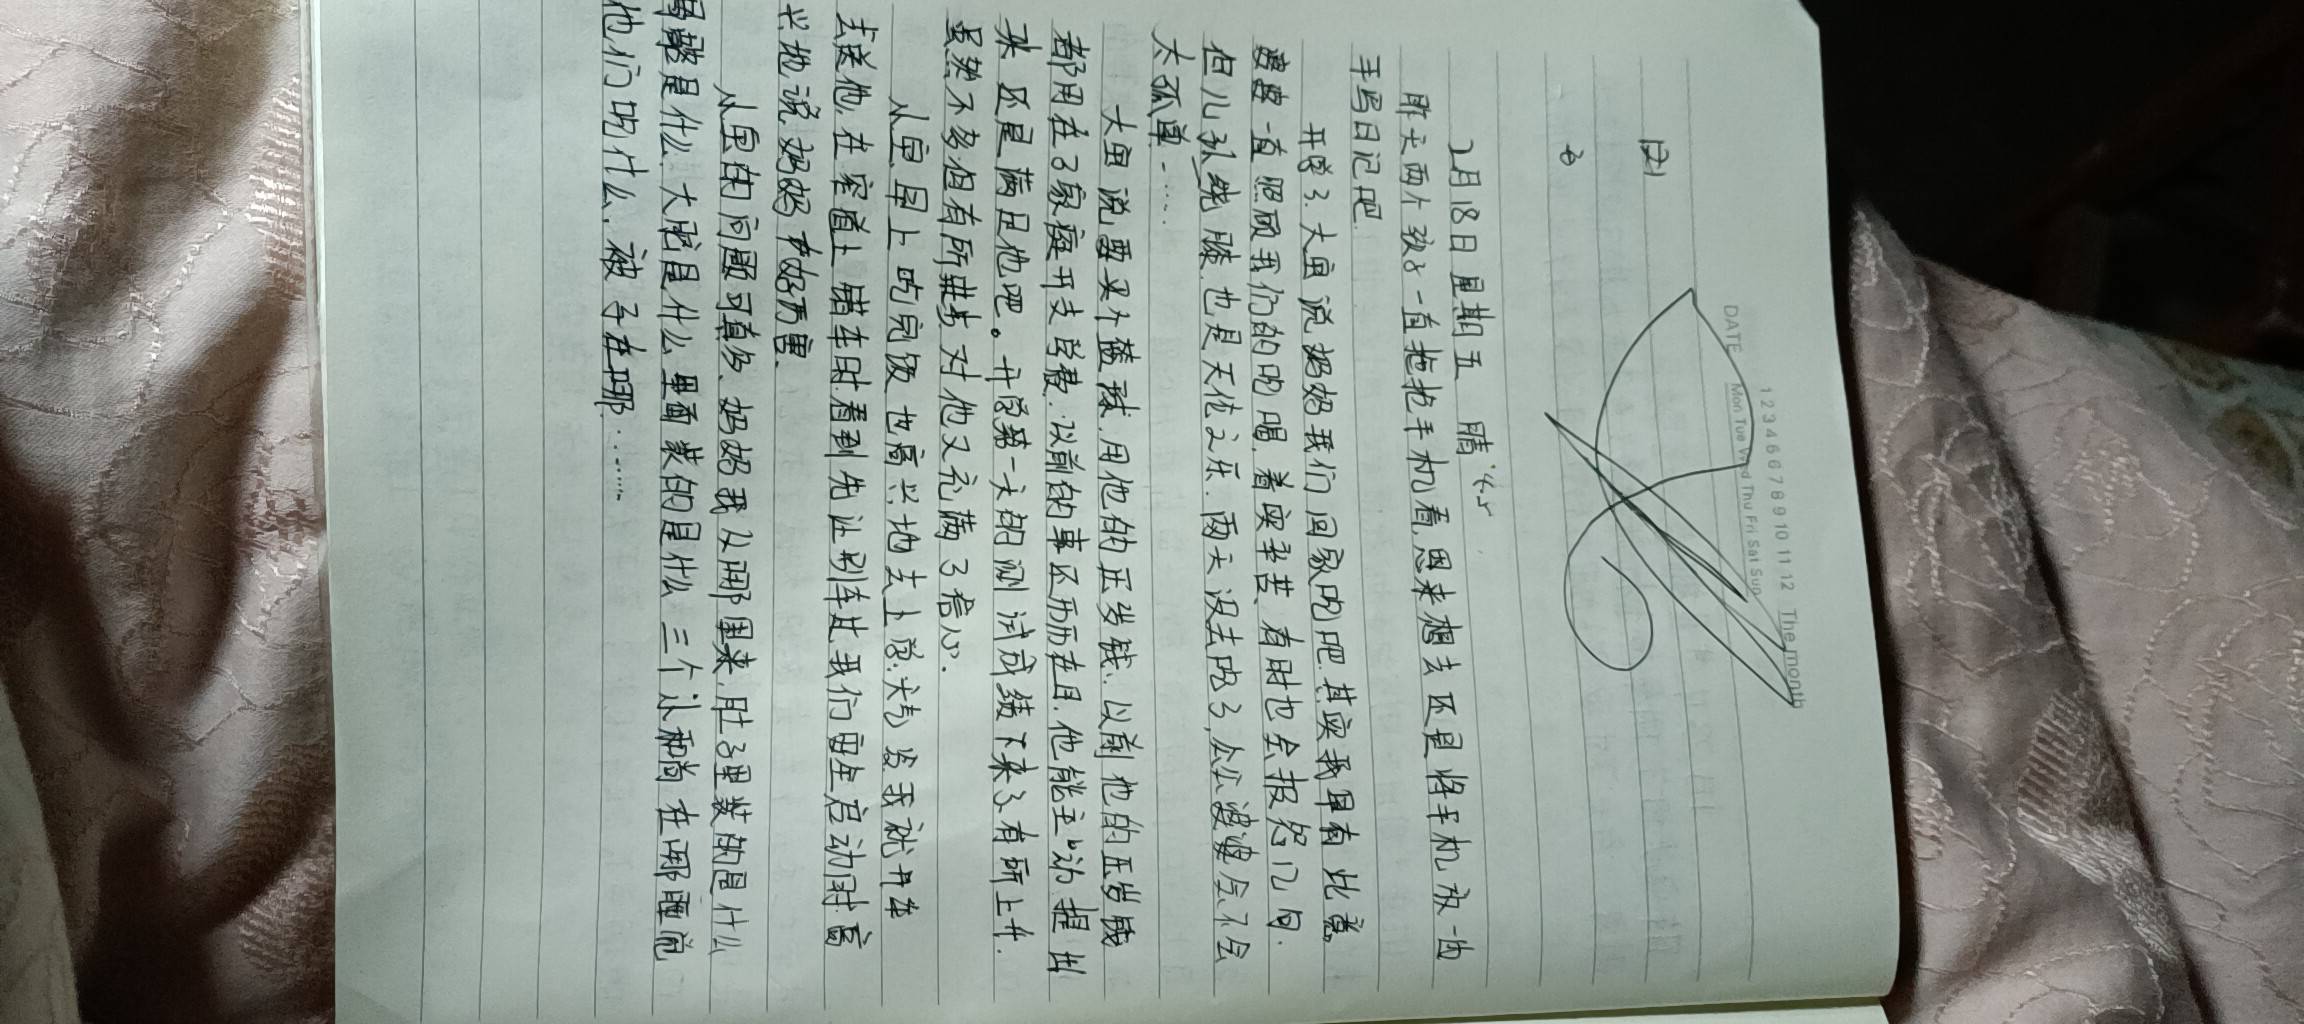 1 2 3 4 5 6 7 8 9 10 11 12 The month
DATE Mon Tue Wed Thu Fri Sat Sun
2月18日 星期五 晴
昨天两个孩子一直抱抢手机看,思来想去还是将手机放一边
手写日记吧.
开学了.大鱼说妈妈我们回家吃吧.其实我早有此意
婆婆一直照顾我们的吃喝.着实辛苦.有时也会报怨几句.
但儿孙绕膝也是天伦之乐.两天没去吃了,公公婆婆会不会
太孤单……
大鱼说要买个篮球.用他的压岁钱.以前他的压岁钱
都用在了家庭开支学费.以前的事还历历在目.他能主动提出
来还是满足他吧。开学第一天的测试成绩下来了有所上升.
虽然不多但有所进步对他又充满了信心.
从宝早上吃完饭也高兴地去上学.天气好我就开车
去送他,在窄道上错车时看到先让别车过我们再启动时高
兴地说妈妈你好厉害.
从宝的问题可真多.妈妈我从哪里来.肚子里装的是什么
骨骼是什么.大脑是什么里面装的是什么三个小和尚在哪睡觉
他们吃什么.被子在哪……